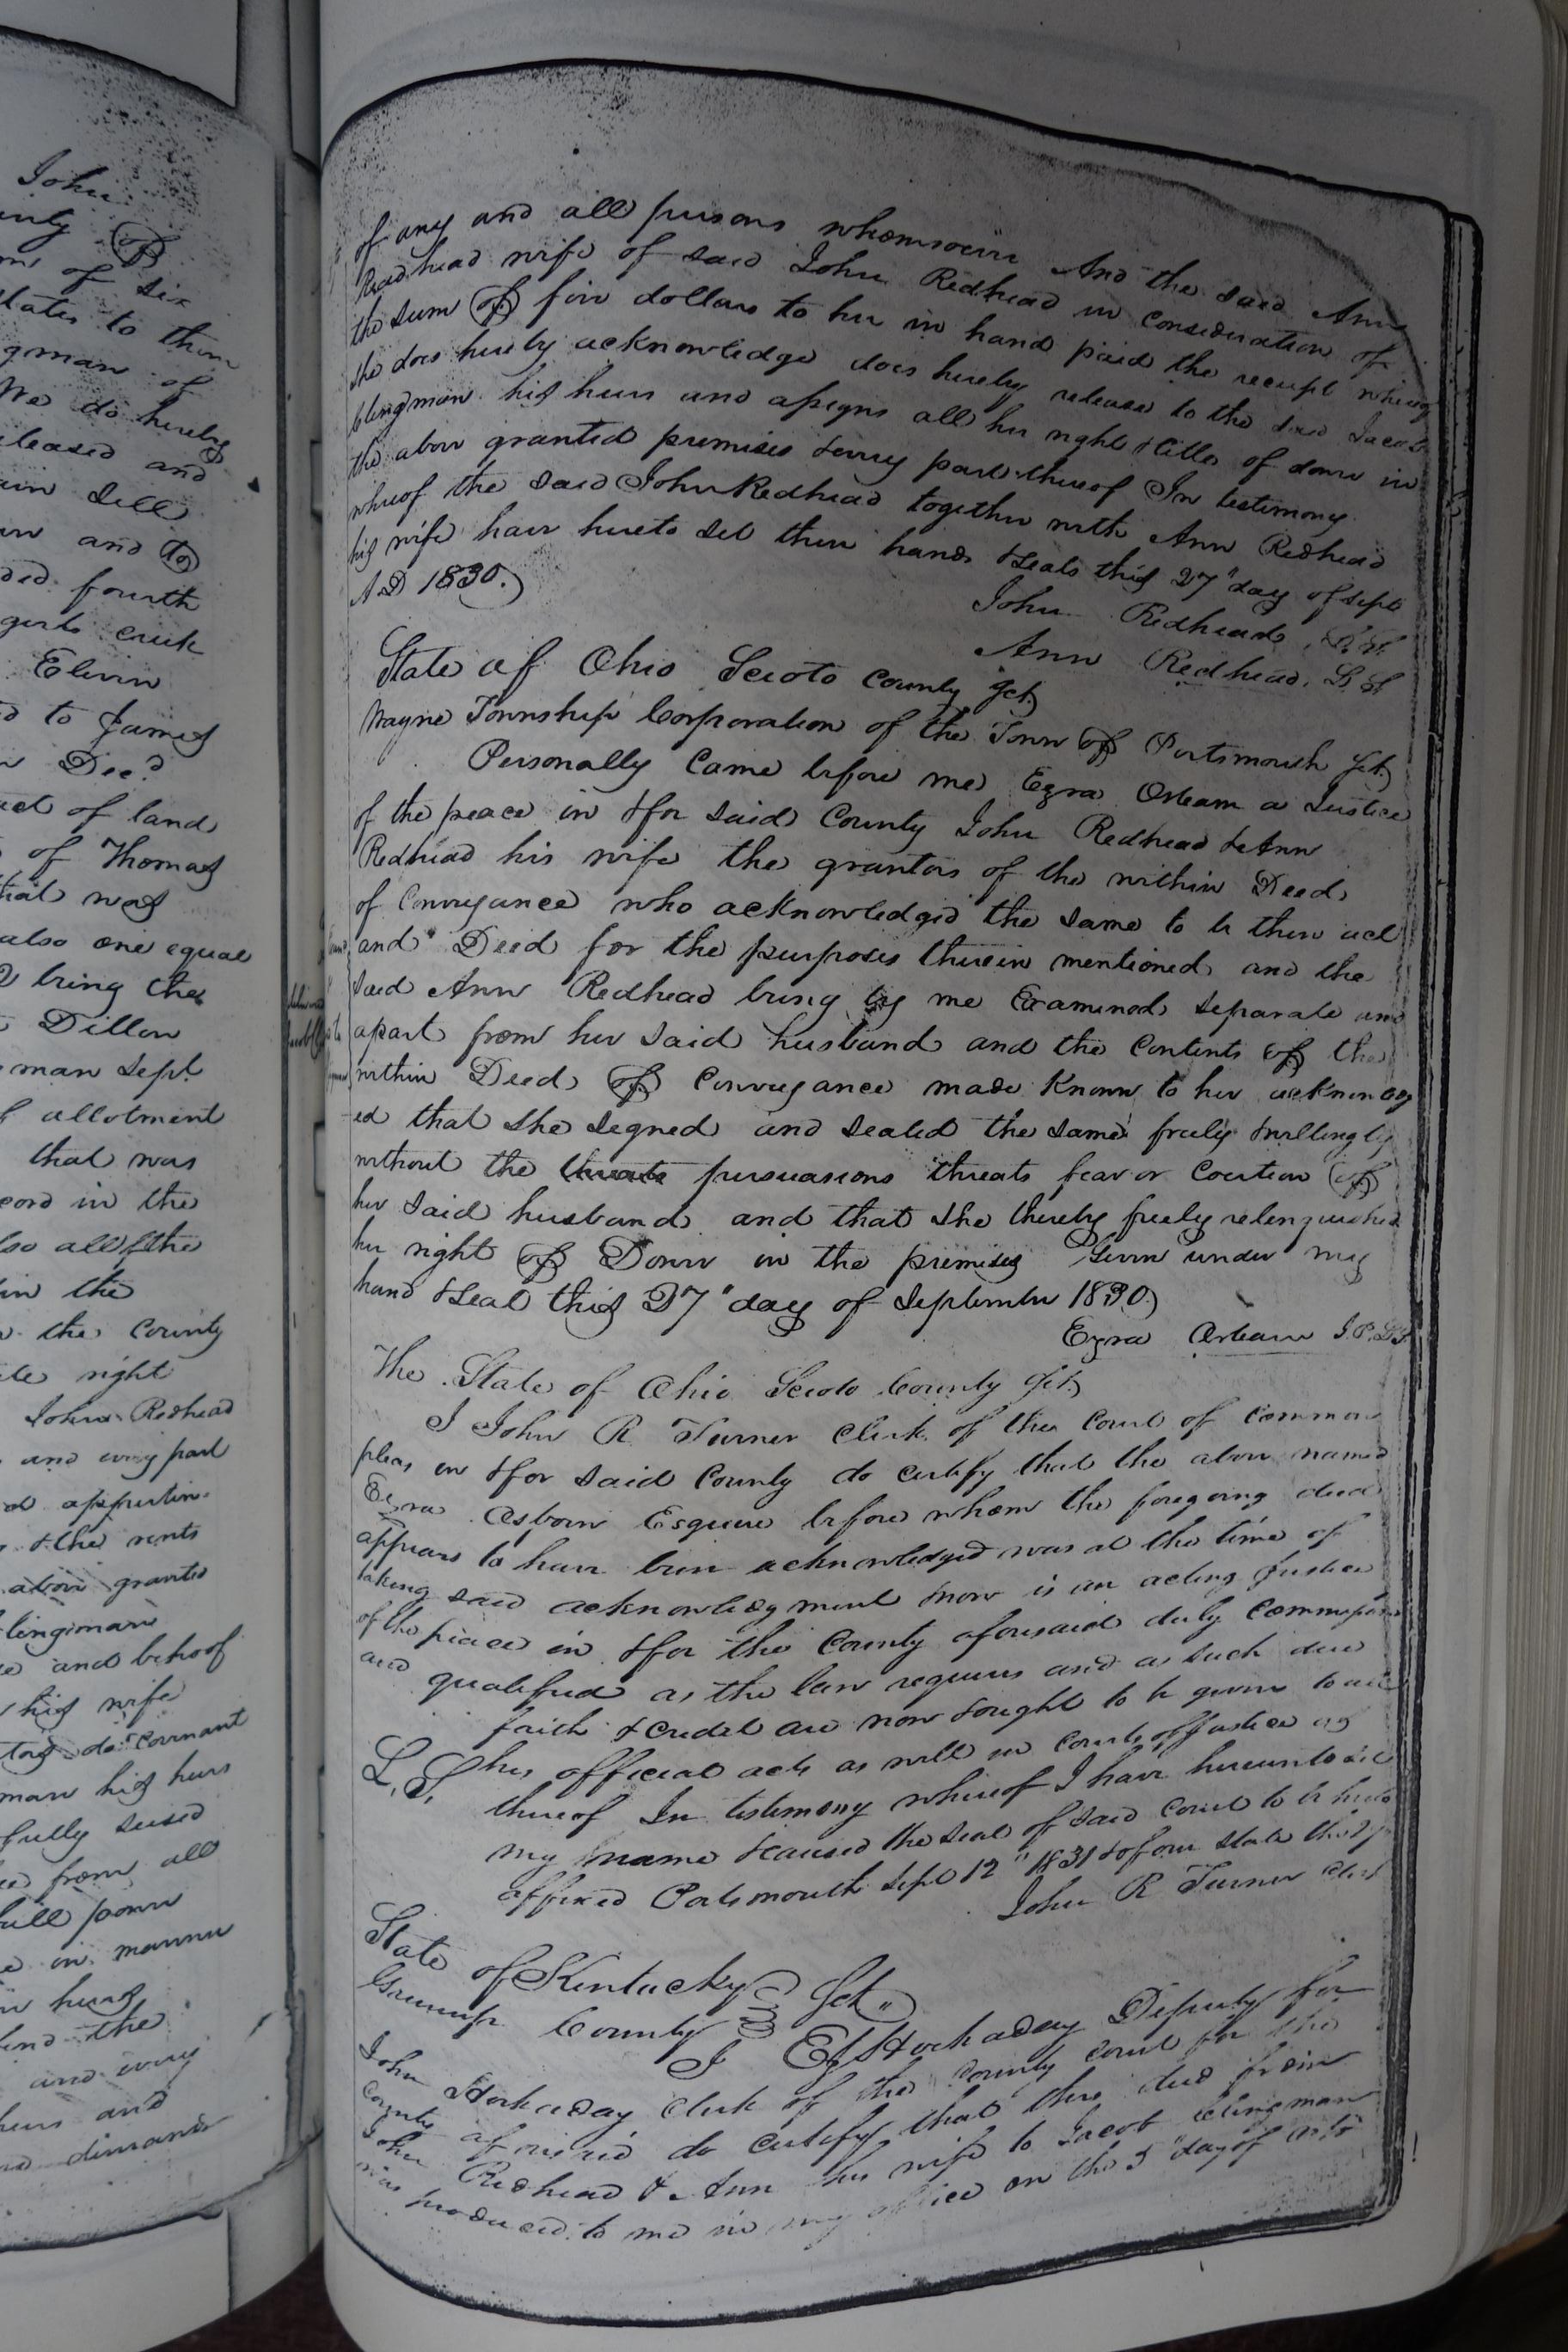 John
of
of six
to them
of
We do hereby
and
Sell
and to
fourth
creek
Elivin
to James
Dec.d
of land
of Thomas
was
also one equal
being the
Dillon
man Sept.
allotment
that was
in the
all the
in the
the County
right
John Redhead
and every part
appurtin-
& the rents
above granted
lingman
and behoof
his wife
do Covenant
man his heirs
seised
from all
full power
in manner
the
and every
heirs and
demands
of any and all persons whomsoever And the said Ann
Redhead wife of said John Redhead in consideration of
the sum of five dollars to her in hand paid the receipt whereof
she does hereby acknowledge does hereby release to the said Jacob
Clingman his heirs and assigns all her right & title of dower in
the above granted premises & every part thereof In testimony
whereof the said John Redhead together with Ann Redhead
his wife have hereto set their hands & seals this 27" day of Sept
A.D 1830.
John Redhead
Ann Redhead. L.S
State of Ohio Scioto County Sct.
Wayne Township Corporation of the Town of Portsmouth Sct.
Personally Came before me Ezra a Justice
of the peace in & for said County John Redhead & Ann
Redhead his wife the grantors of the within Deed
of Conveyance who acknowledged the same to be their act
and Deed for the purposes therein mentioned and the
said Ann Redhead being by me Examined separate and
apart from her said husband and the Contents of the
within Deed of Conveyance made Known to her acknowledg
-ed that she signed and sealed the same freely & willingly
without the threats persuasions threats fear or Coertion of
her said husband and that she thereby freely relenquished
her right of Dower in the premises Given under my
hand & seal this 27" day of September 1830
Ezra J.P. L.S
The State of Ohio Scioto County Sct.
I John R Turner Clerk of the Court of Common
pleas in & for said County do certify that the above named
Ezra Osborn Esquire before whom the foregoing deed
appears to have been acknowledged was at the time of
taking said acknowledgment & now is an acting Justice
of the peace in & for the County aforesaid duly Commissioned
and qualified as the law requires and as such due
faith & credit are now & ought to be given to all
L.S. his official acts as well in Courts of Justice as
thereof In testimony whereof I have hereunto set
my name & caused the seal of said Court to be hereto
affixed Portsmouth Sept 12" 1831 & of our state the
John R Turner Clerk
State of Kentucky Sct.
Greenup County
I Hockaday Deputy for
John Hockaday Clerk of the County Court for the
County aforesaid do certify that this deed from
John Redhead & Ann his wife to Jacob Clingman
was produced to me in my office on the 5" day of